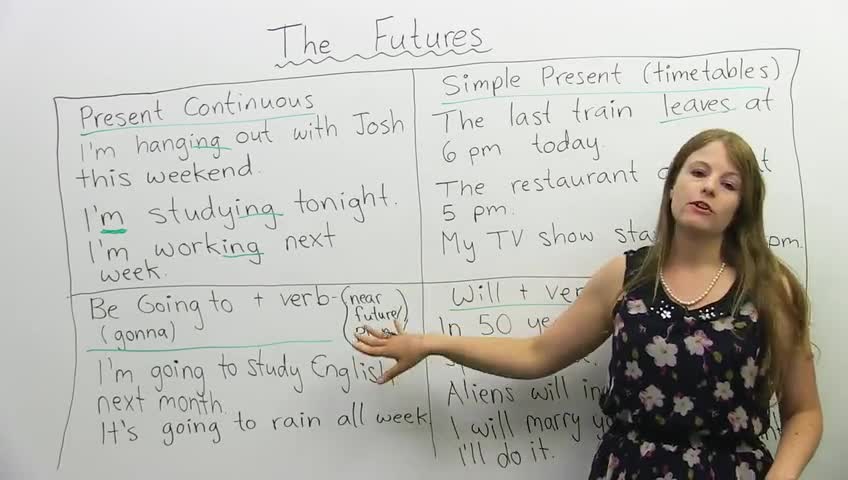 The Futures
Present Continuous
I'm hanging out with Josh
this weekend.
I'm studying tonight.
I'm working next
week.
Simple Present (timetables)
The last train leaves at
6 pm today.
The restaurant
5 pm.
My TV show
pm.
Be Going to + verb
(gonna)
(near
future/
I'm going to study English
next month.
It's going to rain all week
Will +
In 50
Aliens will
I will marry
I'll do it.